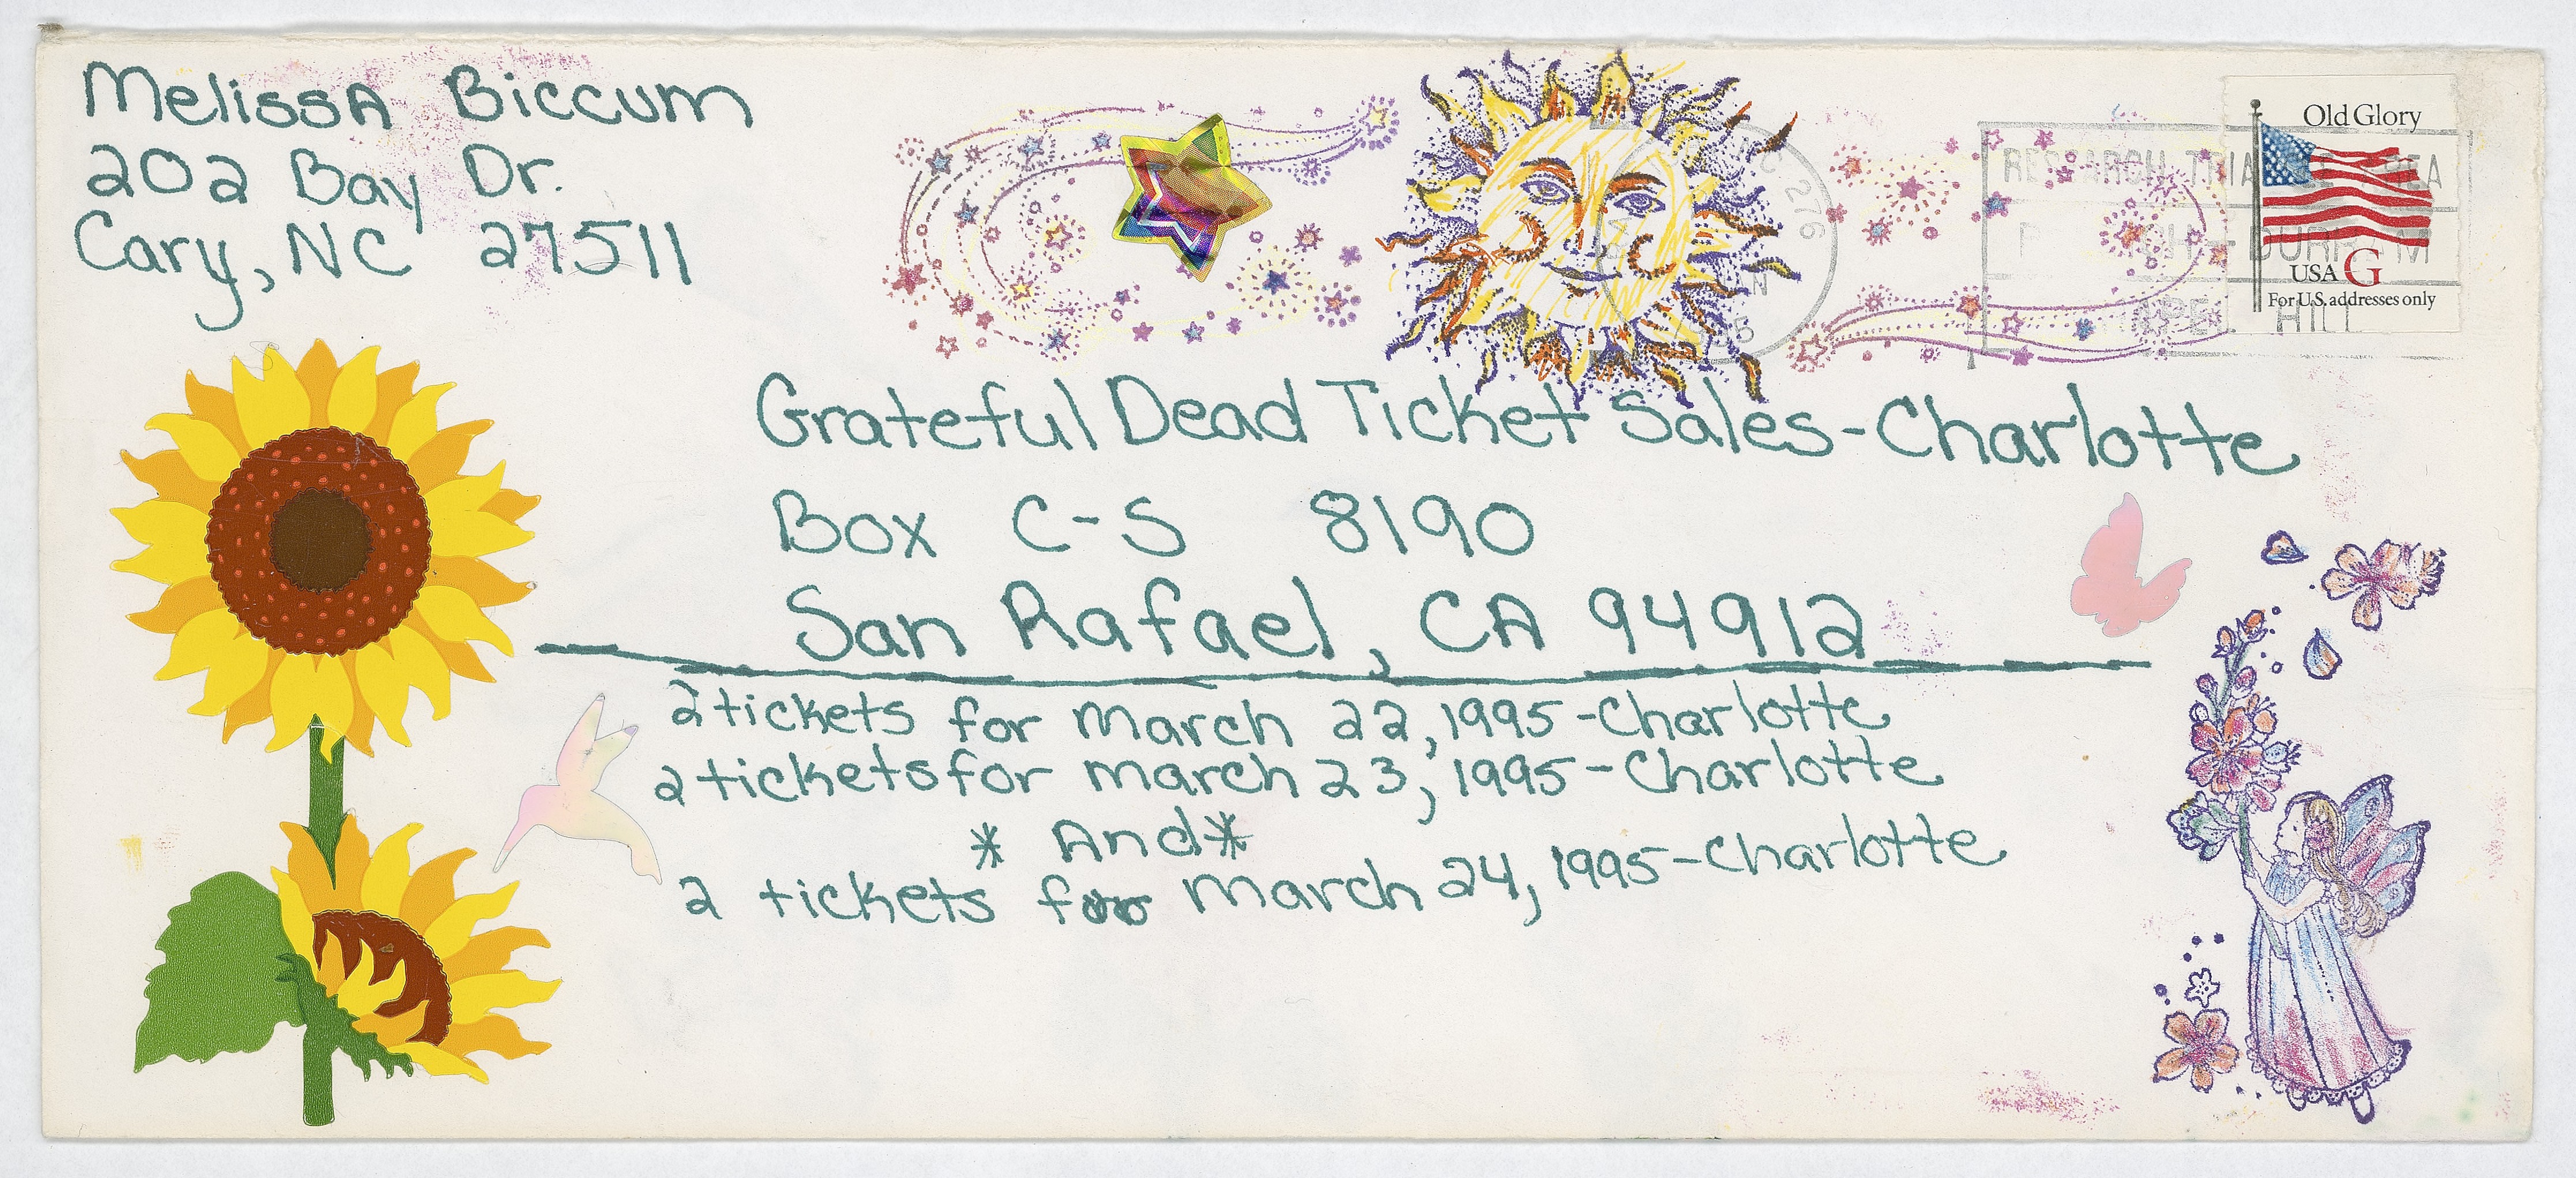 MelissA Biccum
202 Bay Dr.
Cary, NC 27511
NC 276
Old Glory
USA G
For U.S. addresses only
RESEARCH TRIANGLE AREA
DURHAM
HILL
Grateful Dead Ticket Sales-Charlotte
Box C-S 8190
San Rafael, CA 94912
2 tickets for March 22, 1995-Charlotte
2 tickets for march 23, 1995-Charlotte
* And *
2 tickets for March 24, 1995-Charlotte